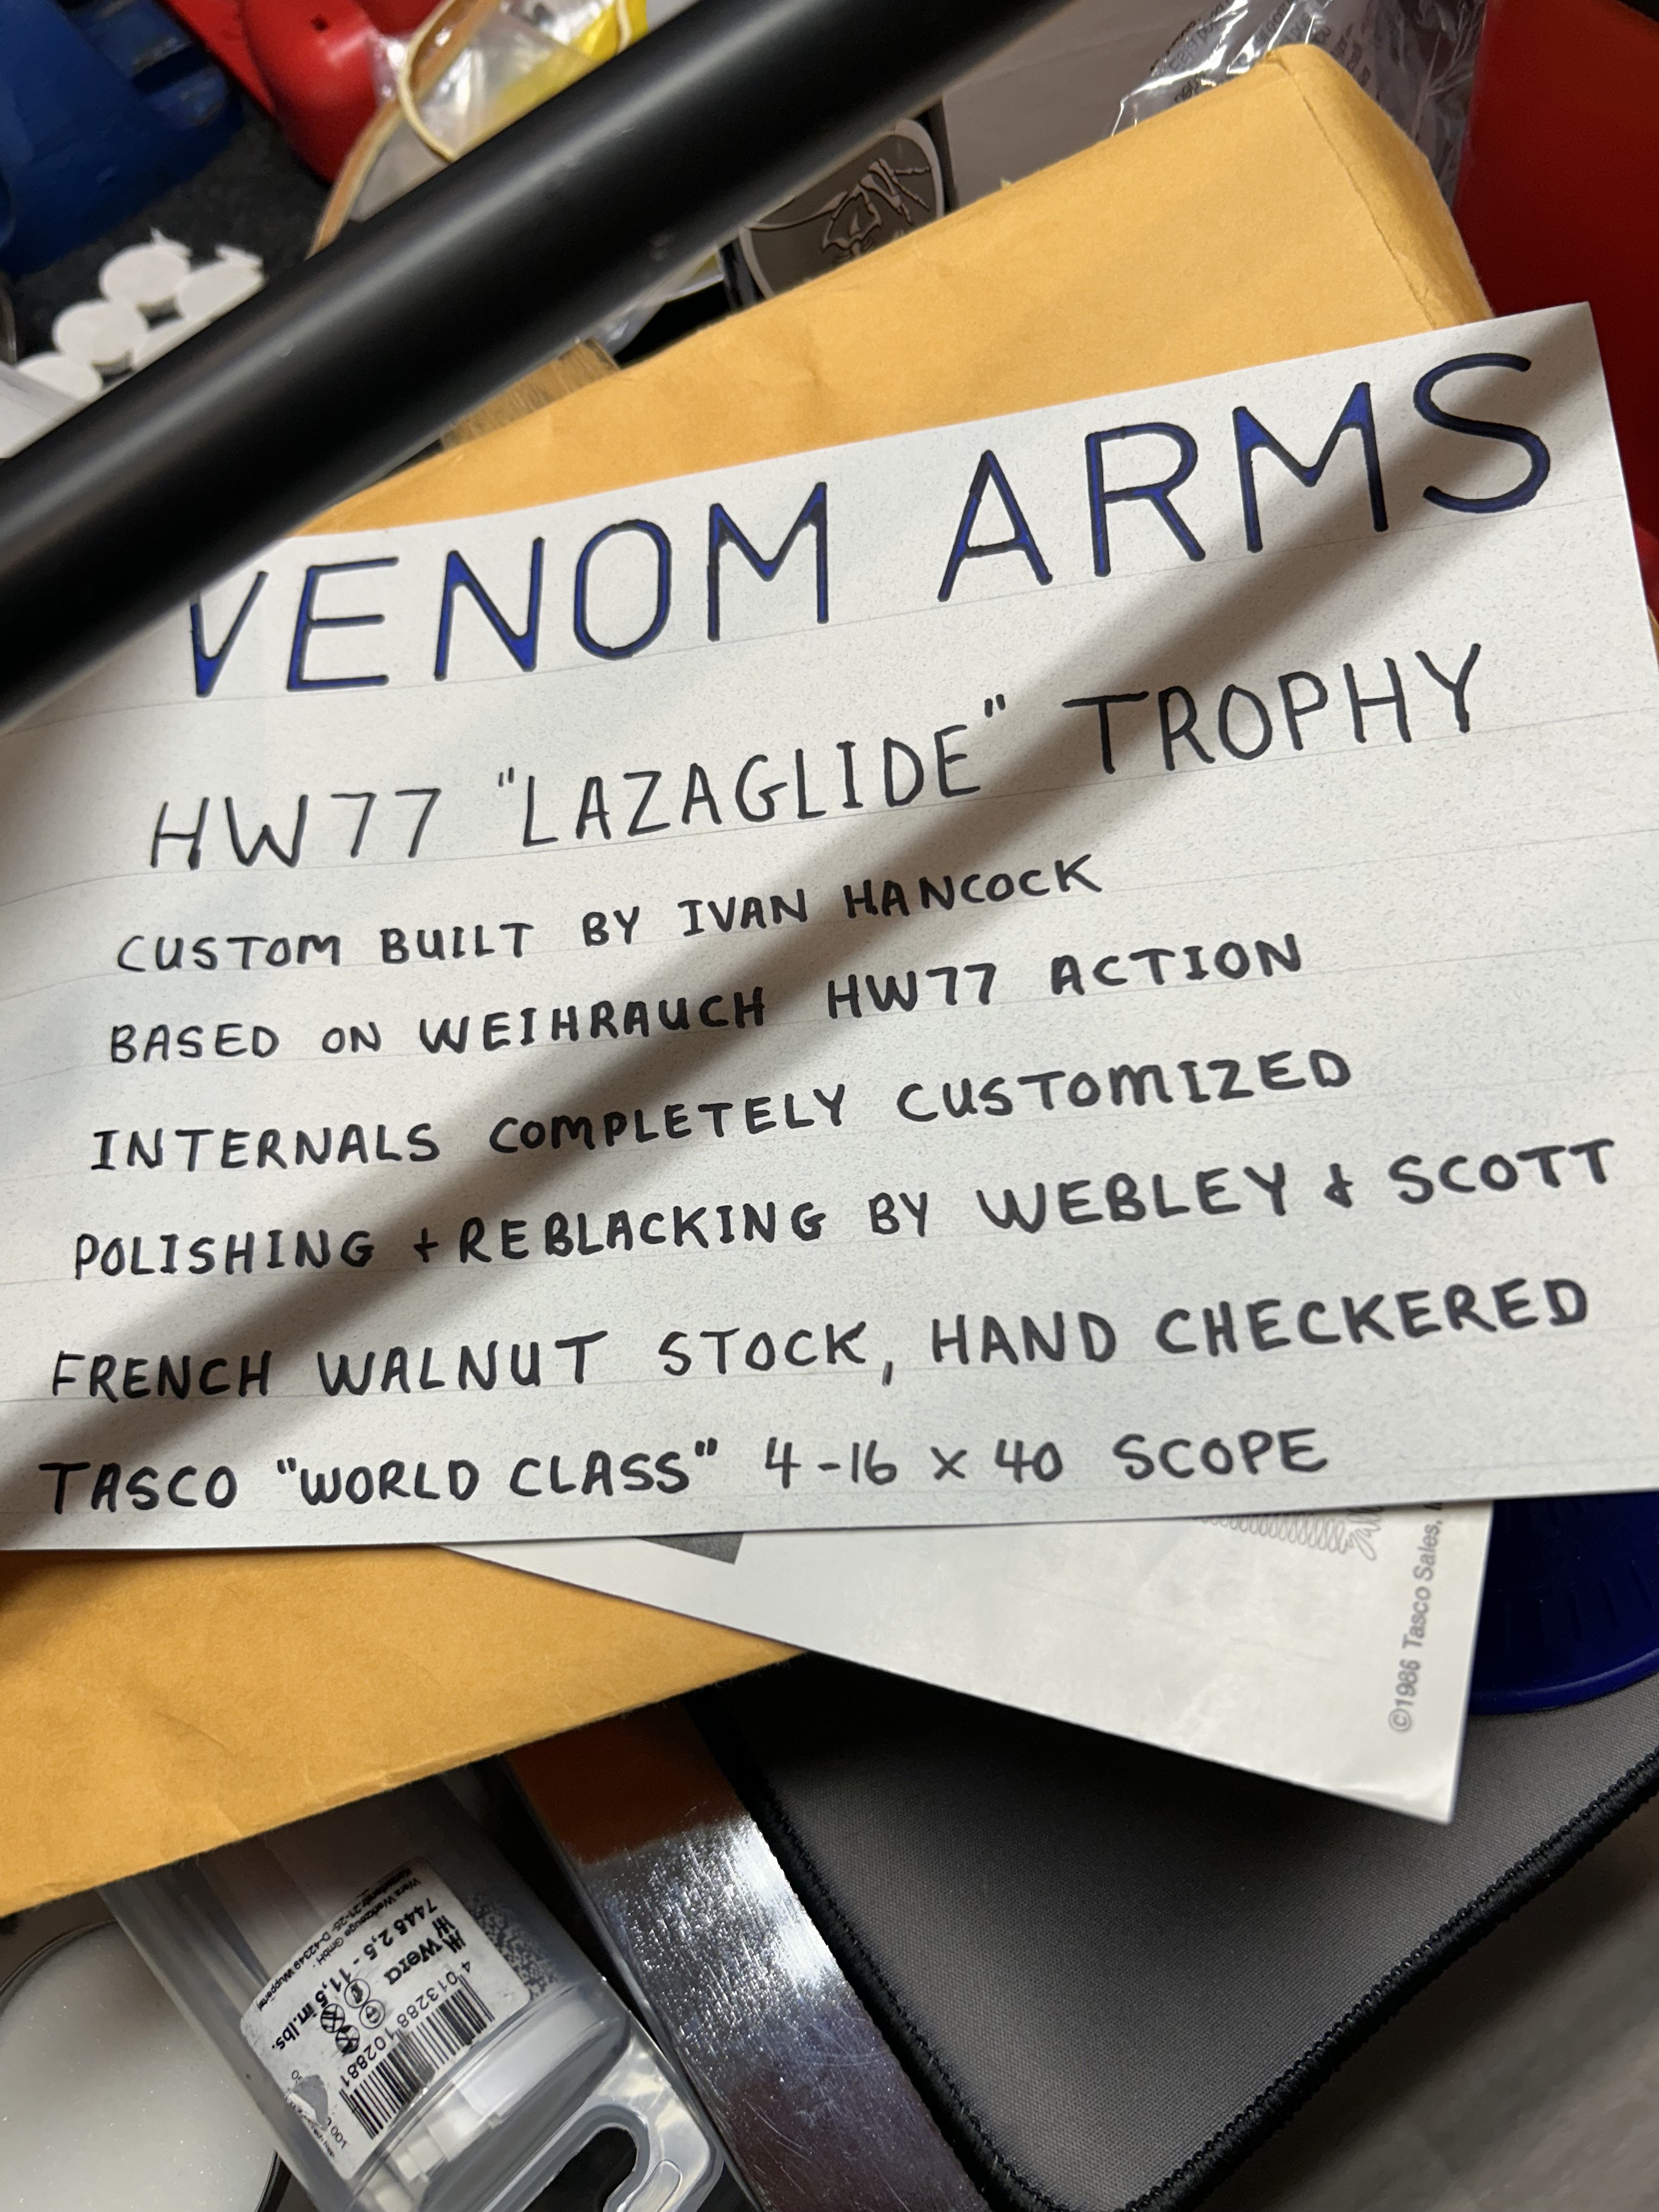 VENOM ARMS
HW77 "LAZAGLIDE" TROPHY
CUSTOM BUILT BY IVAN HANCOCK
BASED ON WEIHRAUCH HW77 ACTION
INTERNALS COMPLETELY CUSTOMIZED
POLISHING + REBLACKING BY WEBLEY & SCOTT
FRENCH WALNUT STOCK, HAND CHECKERED
TASCO "WORLD CLASS" 4-16 x 40 SCOPE
©1986 Tasco Sales,
Wera
7445 2,5 - 11,5 in.lbs.
Wera Werkzeuge GmbH
D-42349 Wuppertal
4 013288 102881